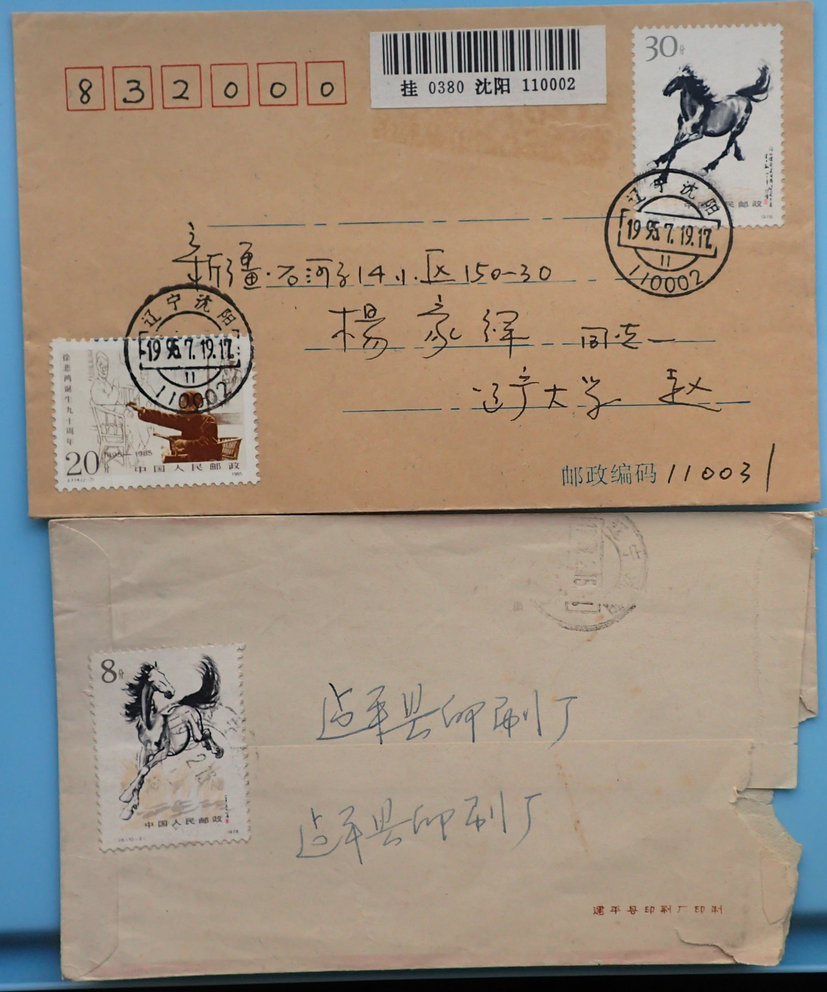 832000
挂 0380 沈阳 110002
30分
中国人民邮政
1978
辽宁沈阳
1995.7.19.17
11
110002
新疆·石河子14小区150-30
楊家绎 同志
辽宁大学 赵
邮政编码 110031
辽宁沈阳
1995.7.19.17
11
110002
徐悲鸿诞生九十周年
20
1895—1985
中国人民邮政
1985
辽宁
8分
中国人民邮政
1978
建平县印刷厂
建平县印刷厂
建平县印刷厂印制